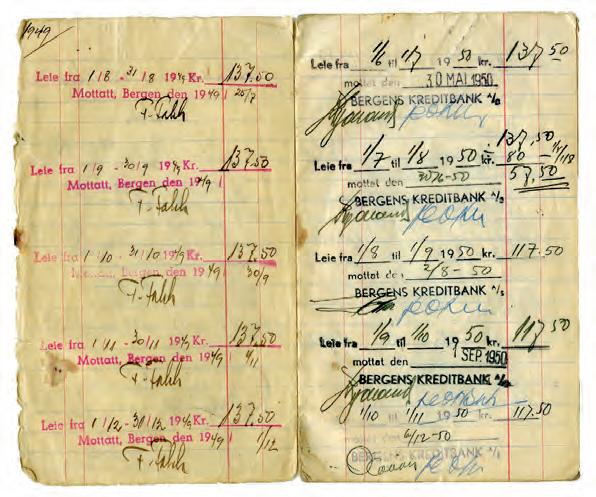 1949
Leie fra 1/8 - 31/8 1949 Kr. 137.50
Mottatt, Bergen den 1949 25/7
F. Falch
Leie fra 1/9 - 30/9 1949 Kr. 137.50
Mottatt, Bergen den 1949
F. Falch
Leie fra 1/10 - 31/10 1949 Kr. 137.50
Mottatt, Bergen den 1949 30/9
F. Falch
Leie fra 1/11 - 30/11 1949 Kr. 137.50
Mottatt, Bergen den 1949 4/11
F. Falch
Leie fra 1/12 - 31/12 1949 Kr. 137.50
Mottatt, Bergen den 1949 1/12
F. Falch
Leie fra 1/6 til 1/7 1950 kr. 137.50
mottat den 30 MAI 1950
BERGENS KREDITBANK A/S
137.50
Leie fra 1/7 til 1/8 1950 kr. 80
57.50
mottat den 30/6-50
BERGENS KREDITBANK A/S
Leie fra 1/8 til 1/9 1950 kr. 117.50
mottat den 2/8-50
BERGENS KREDITBANK A/S
Leie fra 1/9 til 1/10 1950 kr. 117.50
mottat den 1 SEP. 1950
BERGENS KREDITBANK A/S
1/10 til 1/11 1950 kr. 117.50
mottat den
BERGENS KREDITBANK A/S